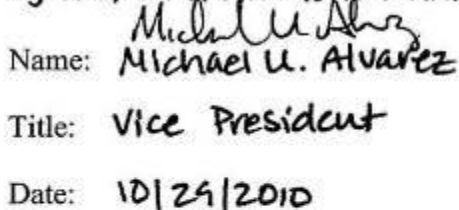 Michael U. Alvarez
Name: Michael U. Alvarez
Title: Vice President
Date: 10/29/2010